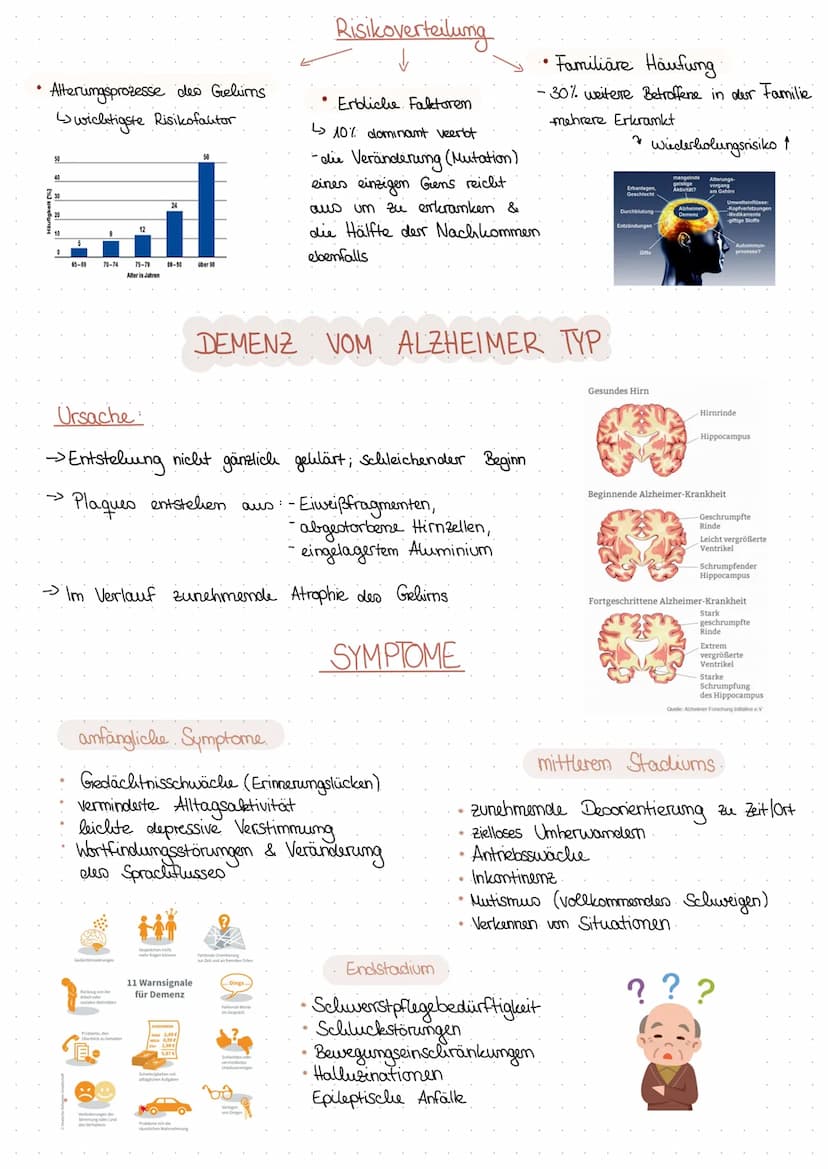 Risikoverteilung
• Alterungsprozesse des Gehirns
↳ wichtigste Risikofaktor
Häufigkeit [%]
50
40
30
20
10
0
5
9
12
24
50
65–69
70–74
75–79
80–90
über 90
Alter in Jahren
• Erbliche Faktoren
↳ 10% dominant veerbt
- die Veränderung (Mutation)
eines einzigen Gens reicht
aus um zu erkranken &
die Hälfte der Nachkommen
ebenfalls
• Familiäre Häufung
- 30% weitere Betroffene in der Familie
mehrere Erkrankt
↳ Wiederholungsrisiko ↑
Erbanlagen,
Geschlecht
mangelnde
geistige
Aktivität?
Alterungs-
vorgang
am Gehirn
Durchblutung
Alzheimer-
Demenz
Umwelteinflüsse:
-Kopfverletzungen
-Medikamente
-giftige Stoffe
Entzündungen
Gifte
Autoimmun-
prozesse?
DEMENZ VOM ALZHEIMER TYP
Ursache:
→ Entstehung nicht gänzlich geklärt; schleichender Beginn
→ Plaques entstehen aus: - Eiweißfragmenten,
- abgestorbene Hirnzellen,
- eingelagertem Aluminium
→ Im Verlauf zunehmende Atrophie des Gehirns
Gesundes Hirn
Hirnrinde
Hippocampus
Beginnende Alzheimer-Krankheit
Geschrumpfte
Rinde
Leicht vergrößerte
Ventrikel
Schrumpfender
Hippocampus
Fortgeschrittene Alzheimer-Krankheit
Stark
geschrumpfte
Rinde
Extrem
vergrößerte
Ventrikel
Starke
Schrumpfung
des Hippocampus
Quelle: Alzheimer Forschung Initiative e.V
SYMPTOME
anfängliche Symptome
• Gedächtnisschwäche (Erinnerungslücken)
• verminderte Alltagsaktivität
• leichte depressive Verstimmung
• Wortfindungsstörungen & Veränderung
des Sprachflusses
mittleren Stadiums
• zunehmende Desorientierung zu Zeit/Ort
• zielloses Umherwandern
• Antriebsswäche
• Inkontinenz
• Mutismus (vollkommendes Schweigen)
• Verkennen von Situationen
11 Warnsignale
für Demenz
... Dings ...
Endstadium
• Schwerstpflegebedürftigkeit
• Schluckstörungen
• Bewegungseinschränkungen
• Halluzinationen
Epileptische Anfälle
? ? ?